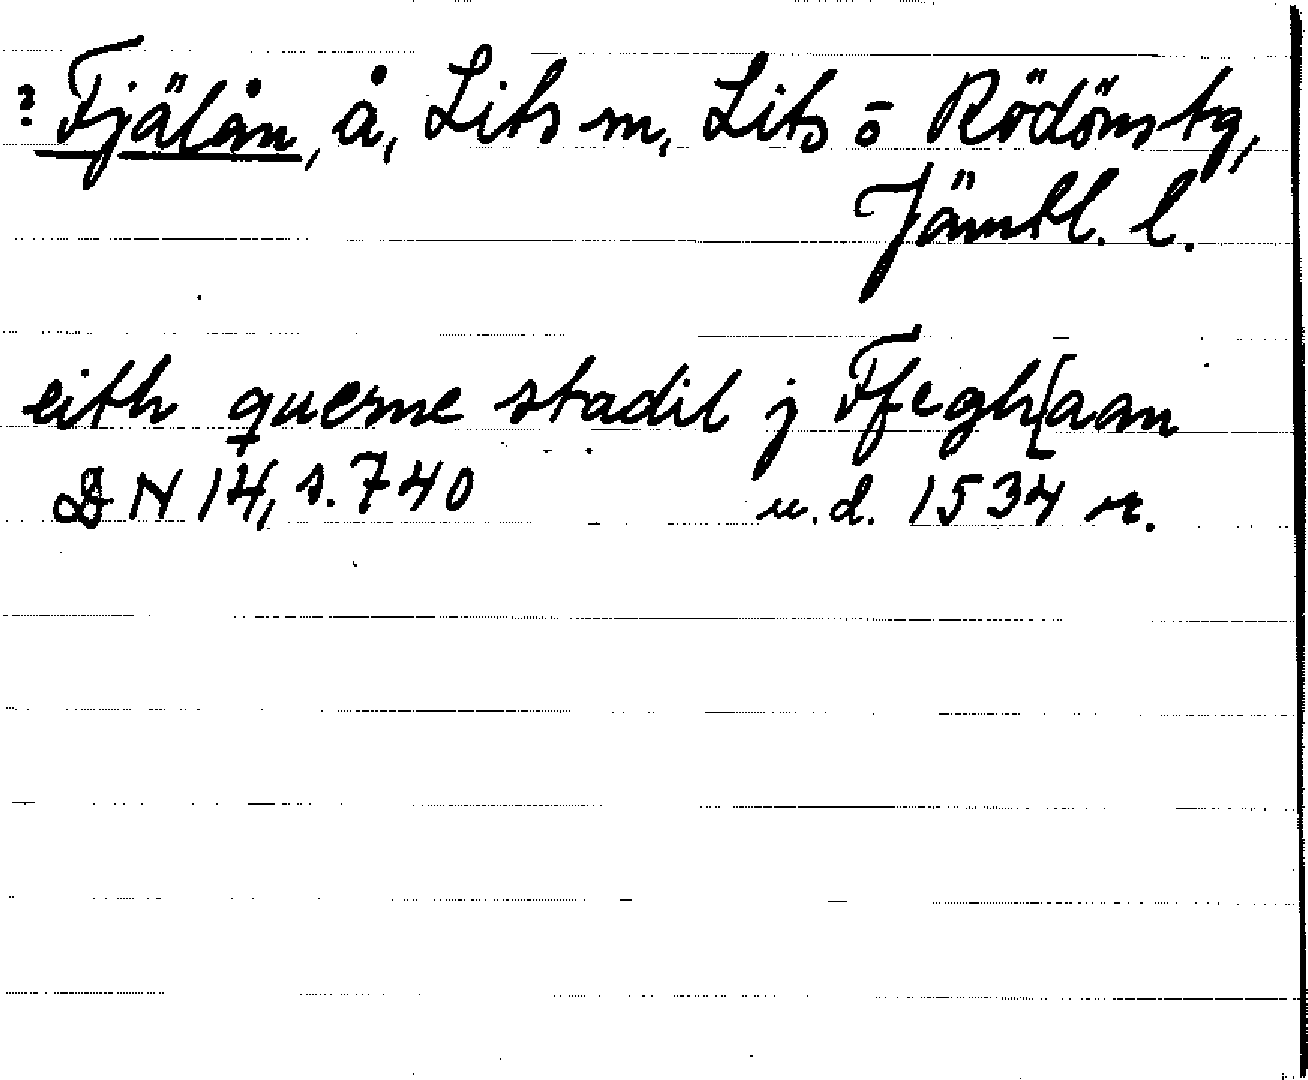 ? Fjälån, å, Lits sn, Lits o Rödöns tg,
Jämtl. l.
eith querne stadil j Ffegh[aan
DN 14, s. 740 u.d. 1534 r.